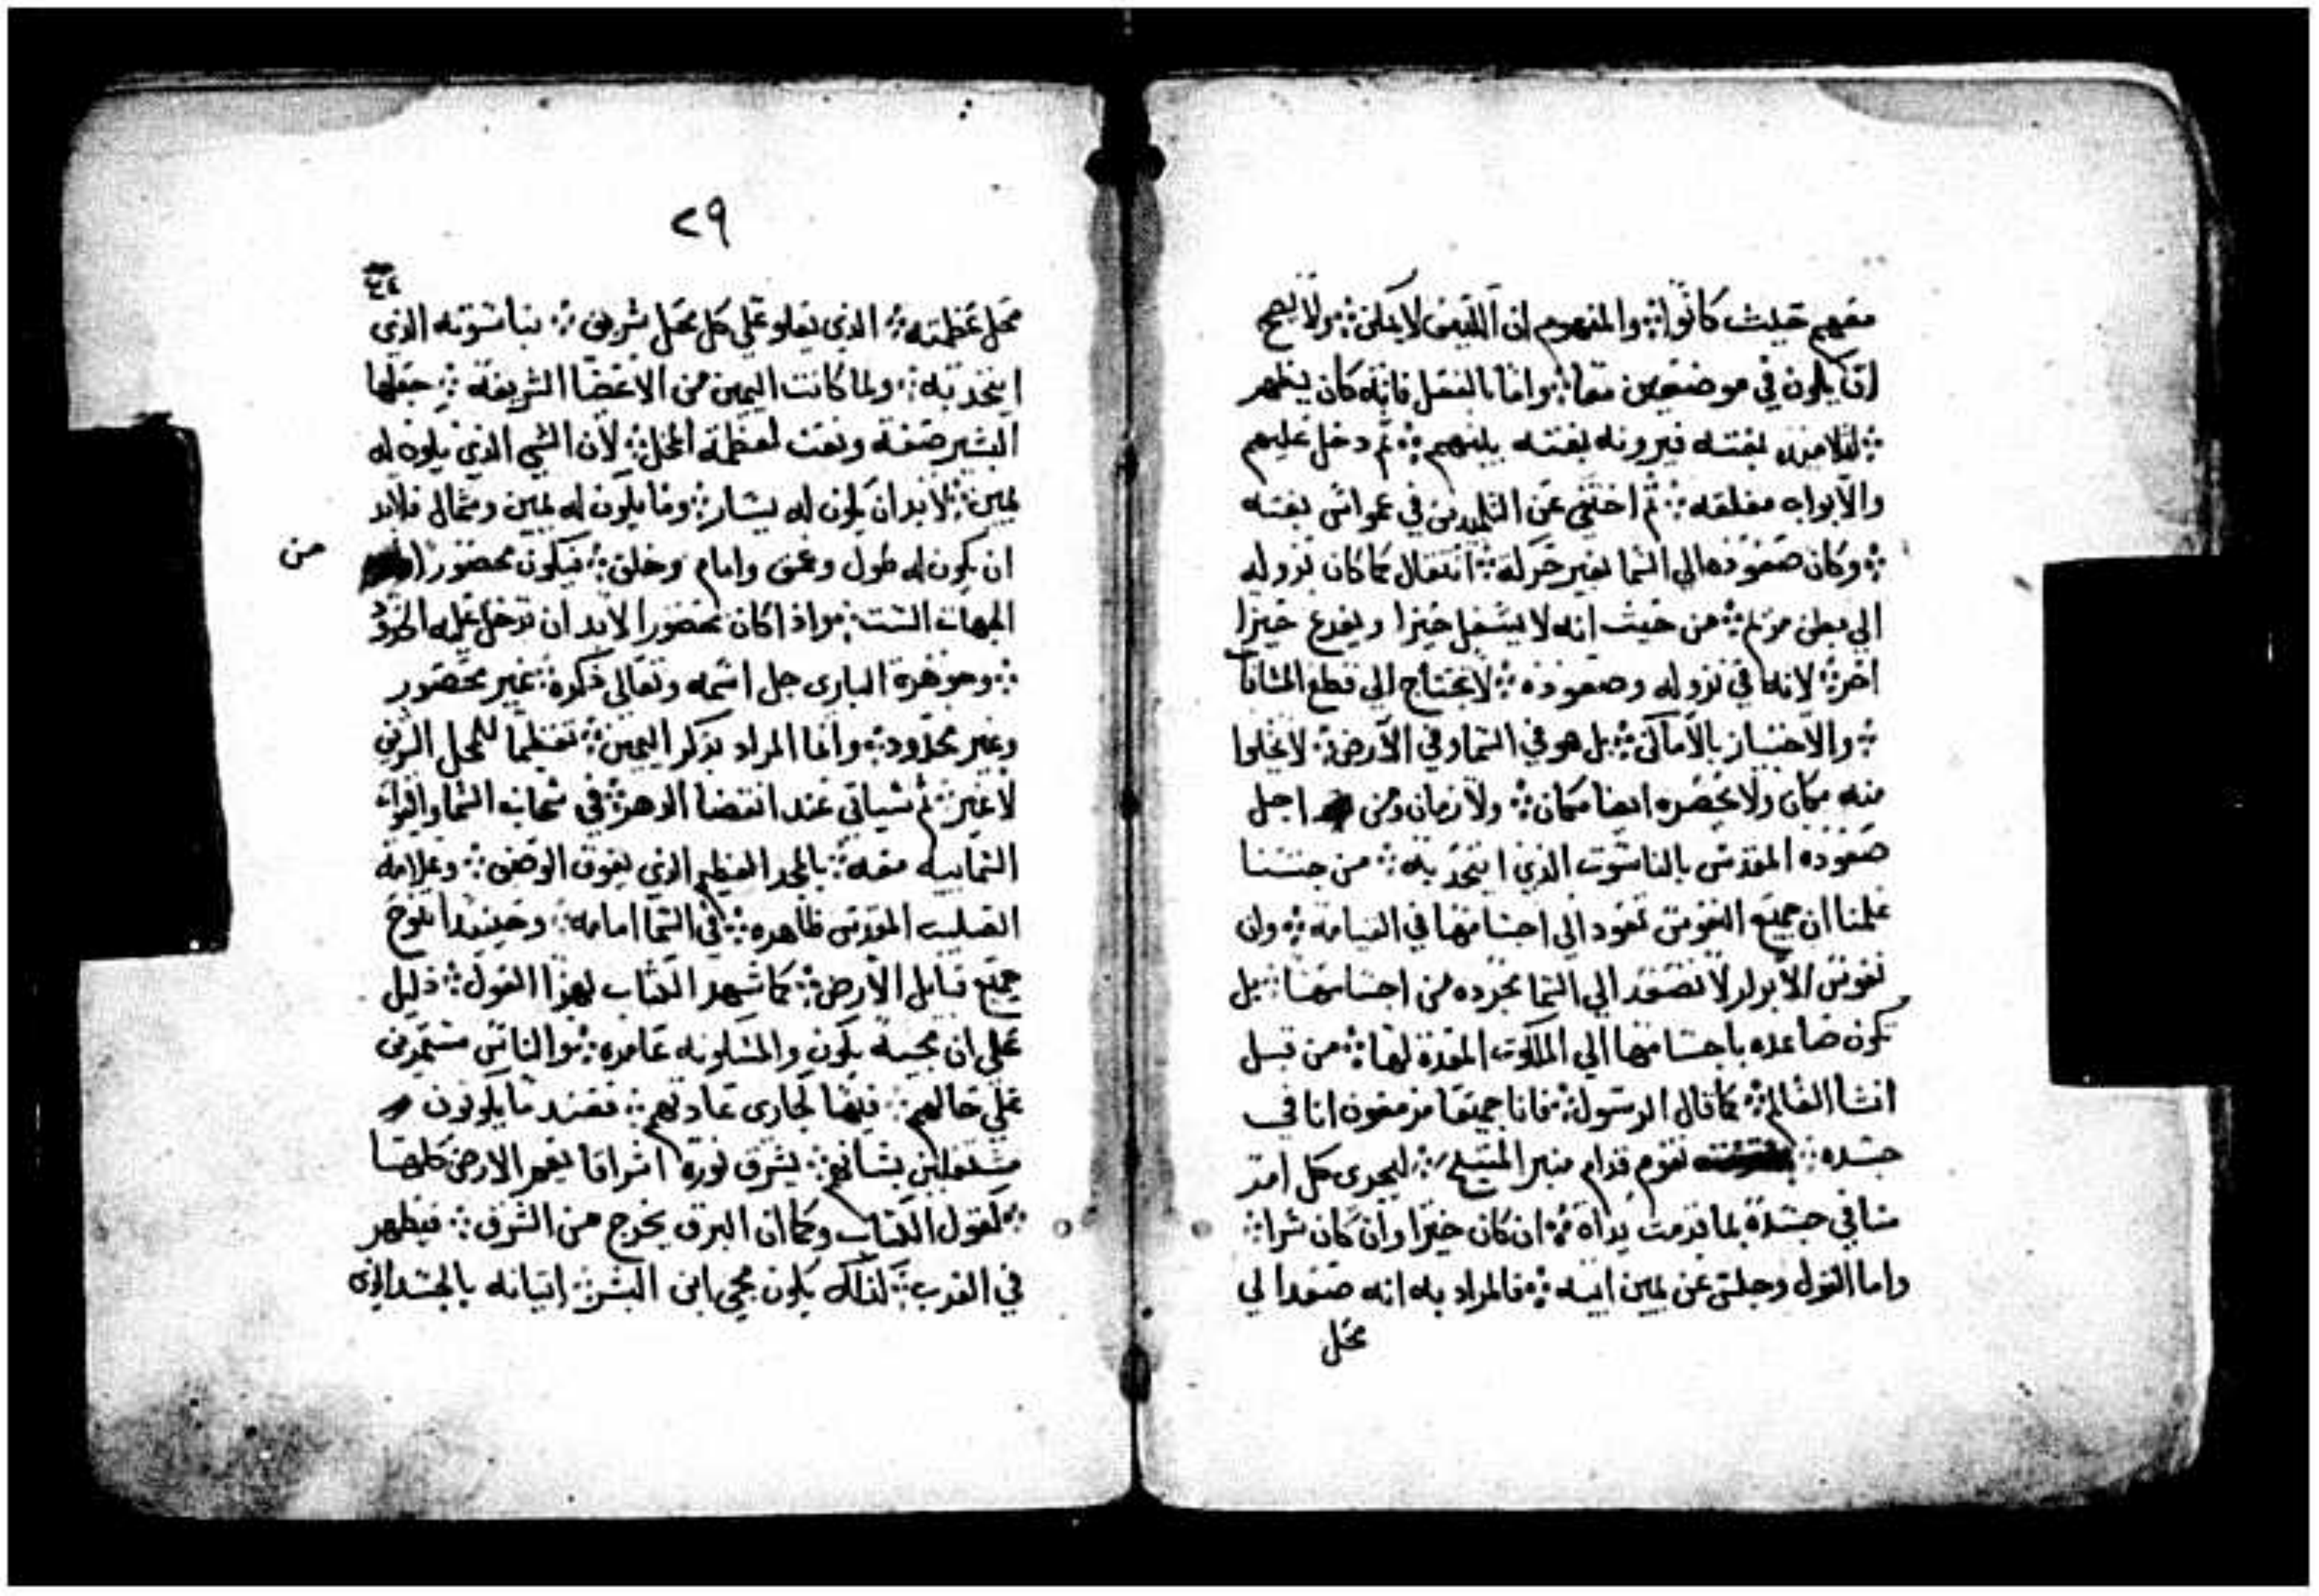 معهم حيث كانوا ⁘ والمفهوم ان الكثيف لا يمكن ⁘ ولا يصح
ان يكون في موضعين معا ⁘ واما بالفعل فانه كان يظهر
⁘ لتلاميذه بغتـه فيرونه بغتـه بينهم ⁘ ثم دخل عليهم
والابواب مغلقه ⁘ ثم اختفي عن التلميدين في عمواس بغتـه
⁘ وكان صعوده الي السما بغير حركة ⁘ انتقال كما كان نزوله
الي بطن مريم ⁘ من حيث انه لا يشغل حيزا ويفرغ حيزا
اخر ⁘ لانه في نزوله وصعوده ⁘ لا يحتاج الي قطع المسافا
⁘ والاجتياز بالاماكن ⁘ بل هو في السما وفي الارض ⁘ لا يخلوا
منه مكان ولا يحصره ايضا مكان ⁘ ولا زمان ومن اجل
صعوده المقدس بالناسوت الذي اتحد به ⁘ من جنسنا
علمنا ان جميع النفوس تعود الي اجسامها في القيامه ⁘ وان
نفوس الابرار لا تصعد الي السما مجرده من اجسامها ⁘ بل
تكون صاعده باجسامها الي الملكوت المعدة لها ⁘ من قبل
انشا العالم ⁘ كما قال الرسول ⁘ فانا جميعا مزمعون انا في
جسده ⁘ نقوم قدام منبر المسيح ⁘ ليجزي كل امر
منا في جسده بما قدمت يداه ⁘ ان كان خيرا وان كان شرا ⁘
واما القول وجلس عن يمين ابيه ⁘ فالمراد به انه صعد الي
محل
٢٩
محل عظمته ⁘ الذي يعلو علي كل محل شريف ⁘ بناسوته الذي
اتحد به ⁘ ولما كانت اليمين من الاعضا الشريفة ⁘ جعلها
البشير صفة ونعت لعظمة المحل ⁘ لان الشي الذي يكون له
يمين ⁘ لابد ان يكون له يسار ⁘ وما يكون له يمين وشمال فلابد
ان يكون له طول وعمق وامام وخلف ⁘ فيكون محصورا
من
الجهات الست ⁘ واذا كان محصورا لابد ان تدخل عليه الحدود
⁘ وجوهرة الباري جل اسمه وتعالى ذكره ⁘ غير محصور
وغير محدود ⁘ وانما المراد بذكر اليمين ⁘ تعظيما للمحل
لا غير ⁘ ثم سياتي عند انقضا الدهر ⁘ في سحاب السما والقوات
السماييه معه ⁘ بالمجد العظيم الذي يفوق الوصف ⁘ وعلامة
الصليب المقدس ظاهره ⁘ في السما امامه ⁘ وحينيدا تنوح
جميع قبايل الارض ⁘ كما شهد الكتاب بهذا القول ⁘ دليل
علي ان مجيه يكون والمسكونه عامره ⁘ والناس مستمرين
علي حالهم ⁘ فيها لجاري عادتهم ⁘ فعند ما يكونون
مشتغلين بشانهم ⁘ يشرق نوره اشراقا يغمر الارض كلها
⁘ كقول الكتاب وكما ان البرق يخرج من الشرق ⁘ فيظهر
في الغرب ⁘ كذلك يكون مجي ابن البشر ⁘ اتيانه بالجسد الذي